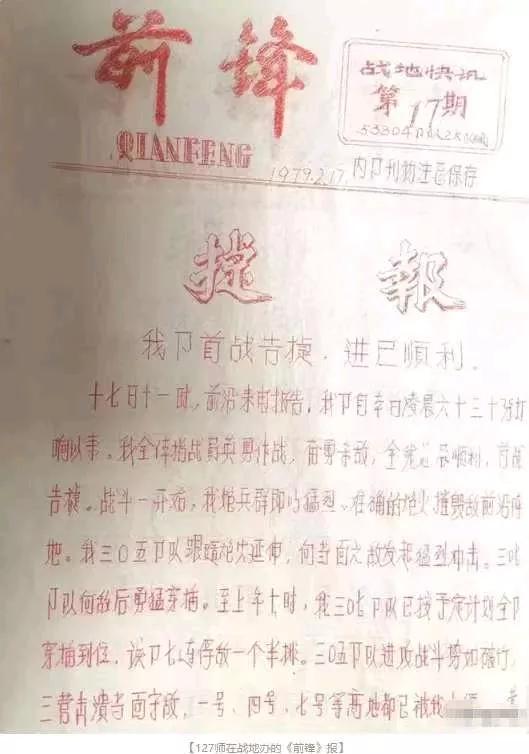 前锋
战地快讯
第17期
53304
QIANFENG
1979.2.17. 内卩刊物注意保存
捷報
我卩首战告捷，进已順利。
十七日十一时，前沿来电报告，我卩自本日凌晨六十三十分打
响以来。我全体指战员英勇作战，奋勇杀敌，全党顺利，首战
告捷。战斗一开始，我炮兵群即以猛烈、准确的炮火摧毁敌前沿阵
地。我三〇五卩队跟随炮火延伸，向当面之敌发起猛烈冲击。三
卩队向敌后勇猛穿插。至上午十时，我三〇卩队已按予定计划全卩
穿插到位，该卩七连俘敌一个半排。三〇五卩队进攻战斗势如破竹，
三营击溃当面守敌，一号、四号、七号等高地都已被我
【127师在战地办的《前锋》报】